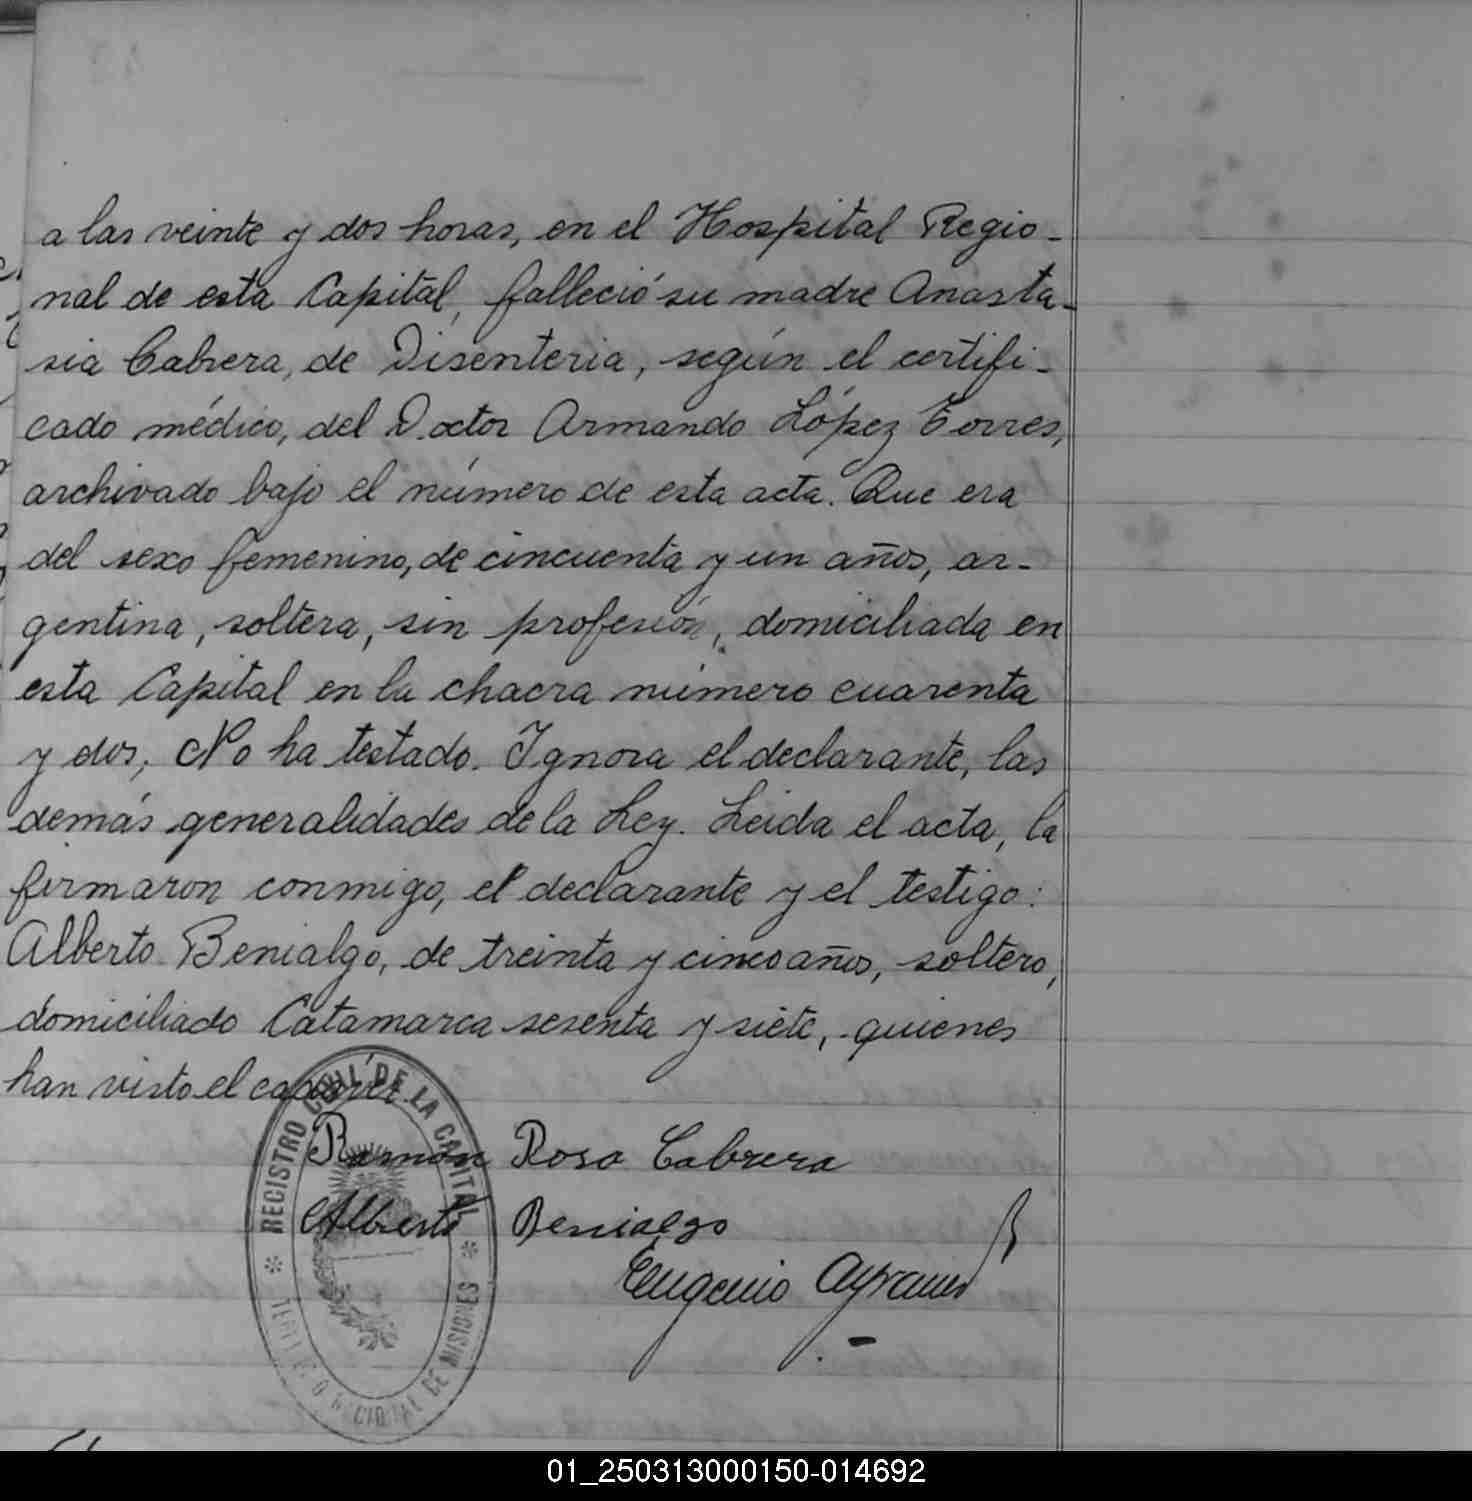 a las veinte y dos horas, en el Hospital Regio-
nal de esta Capital, falleció su madre Anasta-
sia Cabrera, de Disenteria, según el certifi-
cado médico, del Doctor Armando López Torres,
archivado bajo el número de esta acta. Que era
del sexo femenino, de cincuenta y un años, ar-
gentina, soltera, sin profesión, domiciliada en
esta Capital en la chacra número cuarenta
y dos, No ha testado. Ignora el declarante, las
demás generalidades de la Ley. Leida el acta, la
firmaron conmigo, el declarante y el testigo:
Alberto Benialgo, de treinta y cinco años, soltero,
domiciliado Catamarca sesenta y siete, quienes
han visto el caváver.
REGISTRO CIVIL DE LA CAPITAL
Ramón Rosa Cabrera
Alberto Benialgo
Eugenio
TERRITORIO NACIONAL DE MISIONES
01_250313000150-014692